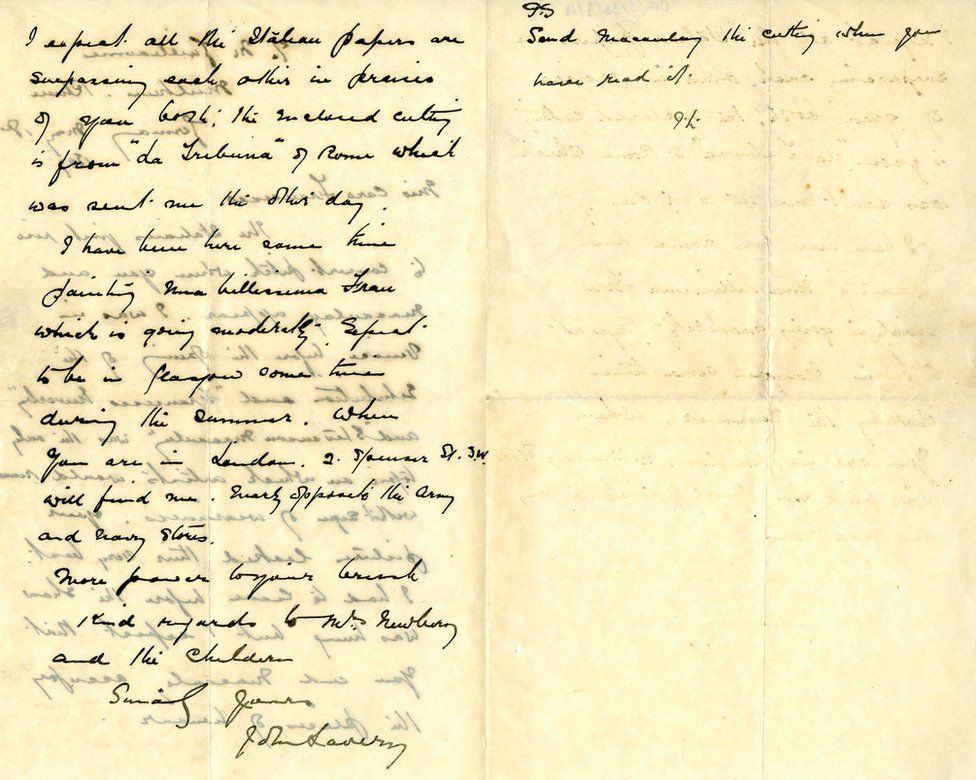 I expect all the Italian papers are
surpassing each other in praise
of you both; the enclosed cutting
is from "La Tribuna" of Rome which
was sent me the other day.
I have been here some time
painting una billissima Frau
which is going moderately. Expect
to be in Glasgow some time
during the summer. When
you are in London. 2. Spenser St. S.W.
will find me. nearly opposite the Army
and Navy Stores.
More power to your brush
Kind regards to Mrs Newbery
and the children
Yours
John Lavery
PS
Send Macaulay the cutting when you
have read it.